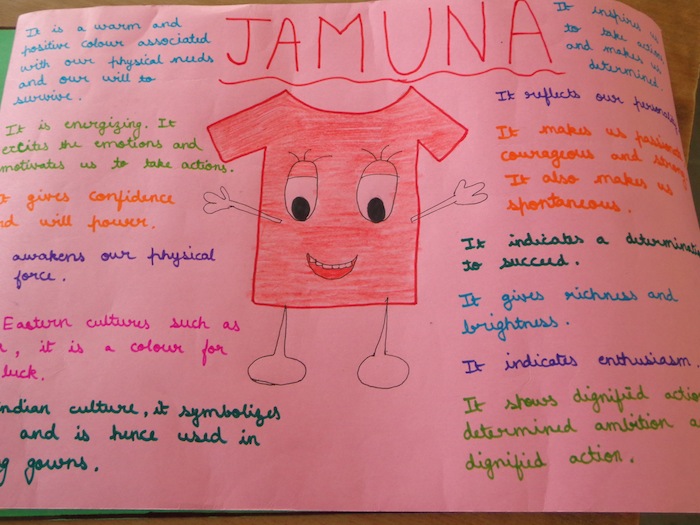 JAMUNA
It is a warm and
positive colour associated
with our physical needs
and our will to
survive.
It is energizing. It
excites the emotions and
motivates us to take actions.
gives confidence
will power.
awakens our physical
force.
Eastern cultures such as
, it is a colour for
luck.
indian culture, it symbolizes
and is hence used in
gowns.
It inspires us
to take action
and makes us
determined.
It reflects our
It makes us
courageous and
It also makes us
spontaneous.
It indicates a
to succeed.
It gives richness and
brightness.
It indicates enthusiasm.
It shows dignified
determined ambition
dignified action.